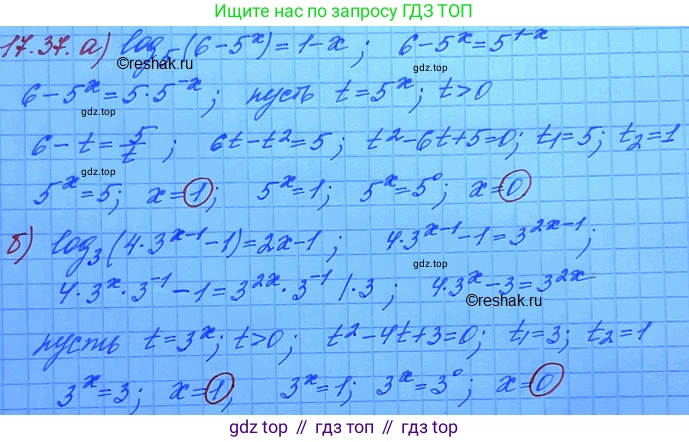 Ищите нас по запросу ГДЗ ТОП
17.37. а) log₅(6-5ˣ)=1-x; 6-5ˣ=5¹⁻ˣ
©reshak.ru
gdz.top
6-5ˣ=5·5⁻ˣ; пусть t=5ˣ; t>0
gdz.top
6-t=5/t; 6t-t²=5; t²-6t+5=0; t₁=5; t₂=1
gdz.top
5ˣ=5; x=1; 5ˣ=1; 5ˣ=5⁰; x=0
б) log₃(4·3ˣ⁻¹-1)=2x-1; 4·3ˣ⁻¹-1=3²ˣ⁻¹;
gdz.top
4·3ˣ·3⁻¹-1=3²ˣ·3⁻¹ |·3; 4·3ˣ-3=3²ˣ
©reshak.ru
пусть t=3ˣ; t>0; t²-4t+3=0; t₁=3; t₂=1
gdz.top
3ˣ=3; x=1; 3ˣ=1; 3ˣ=3⁰; x=0
gdz.top // гдз.топ // gdz.top // гдз.топ